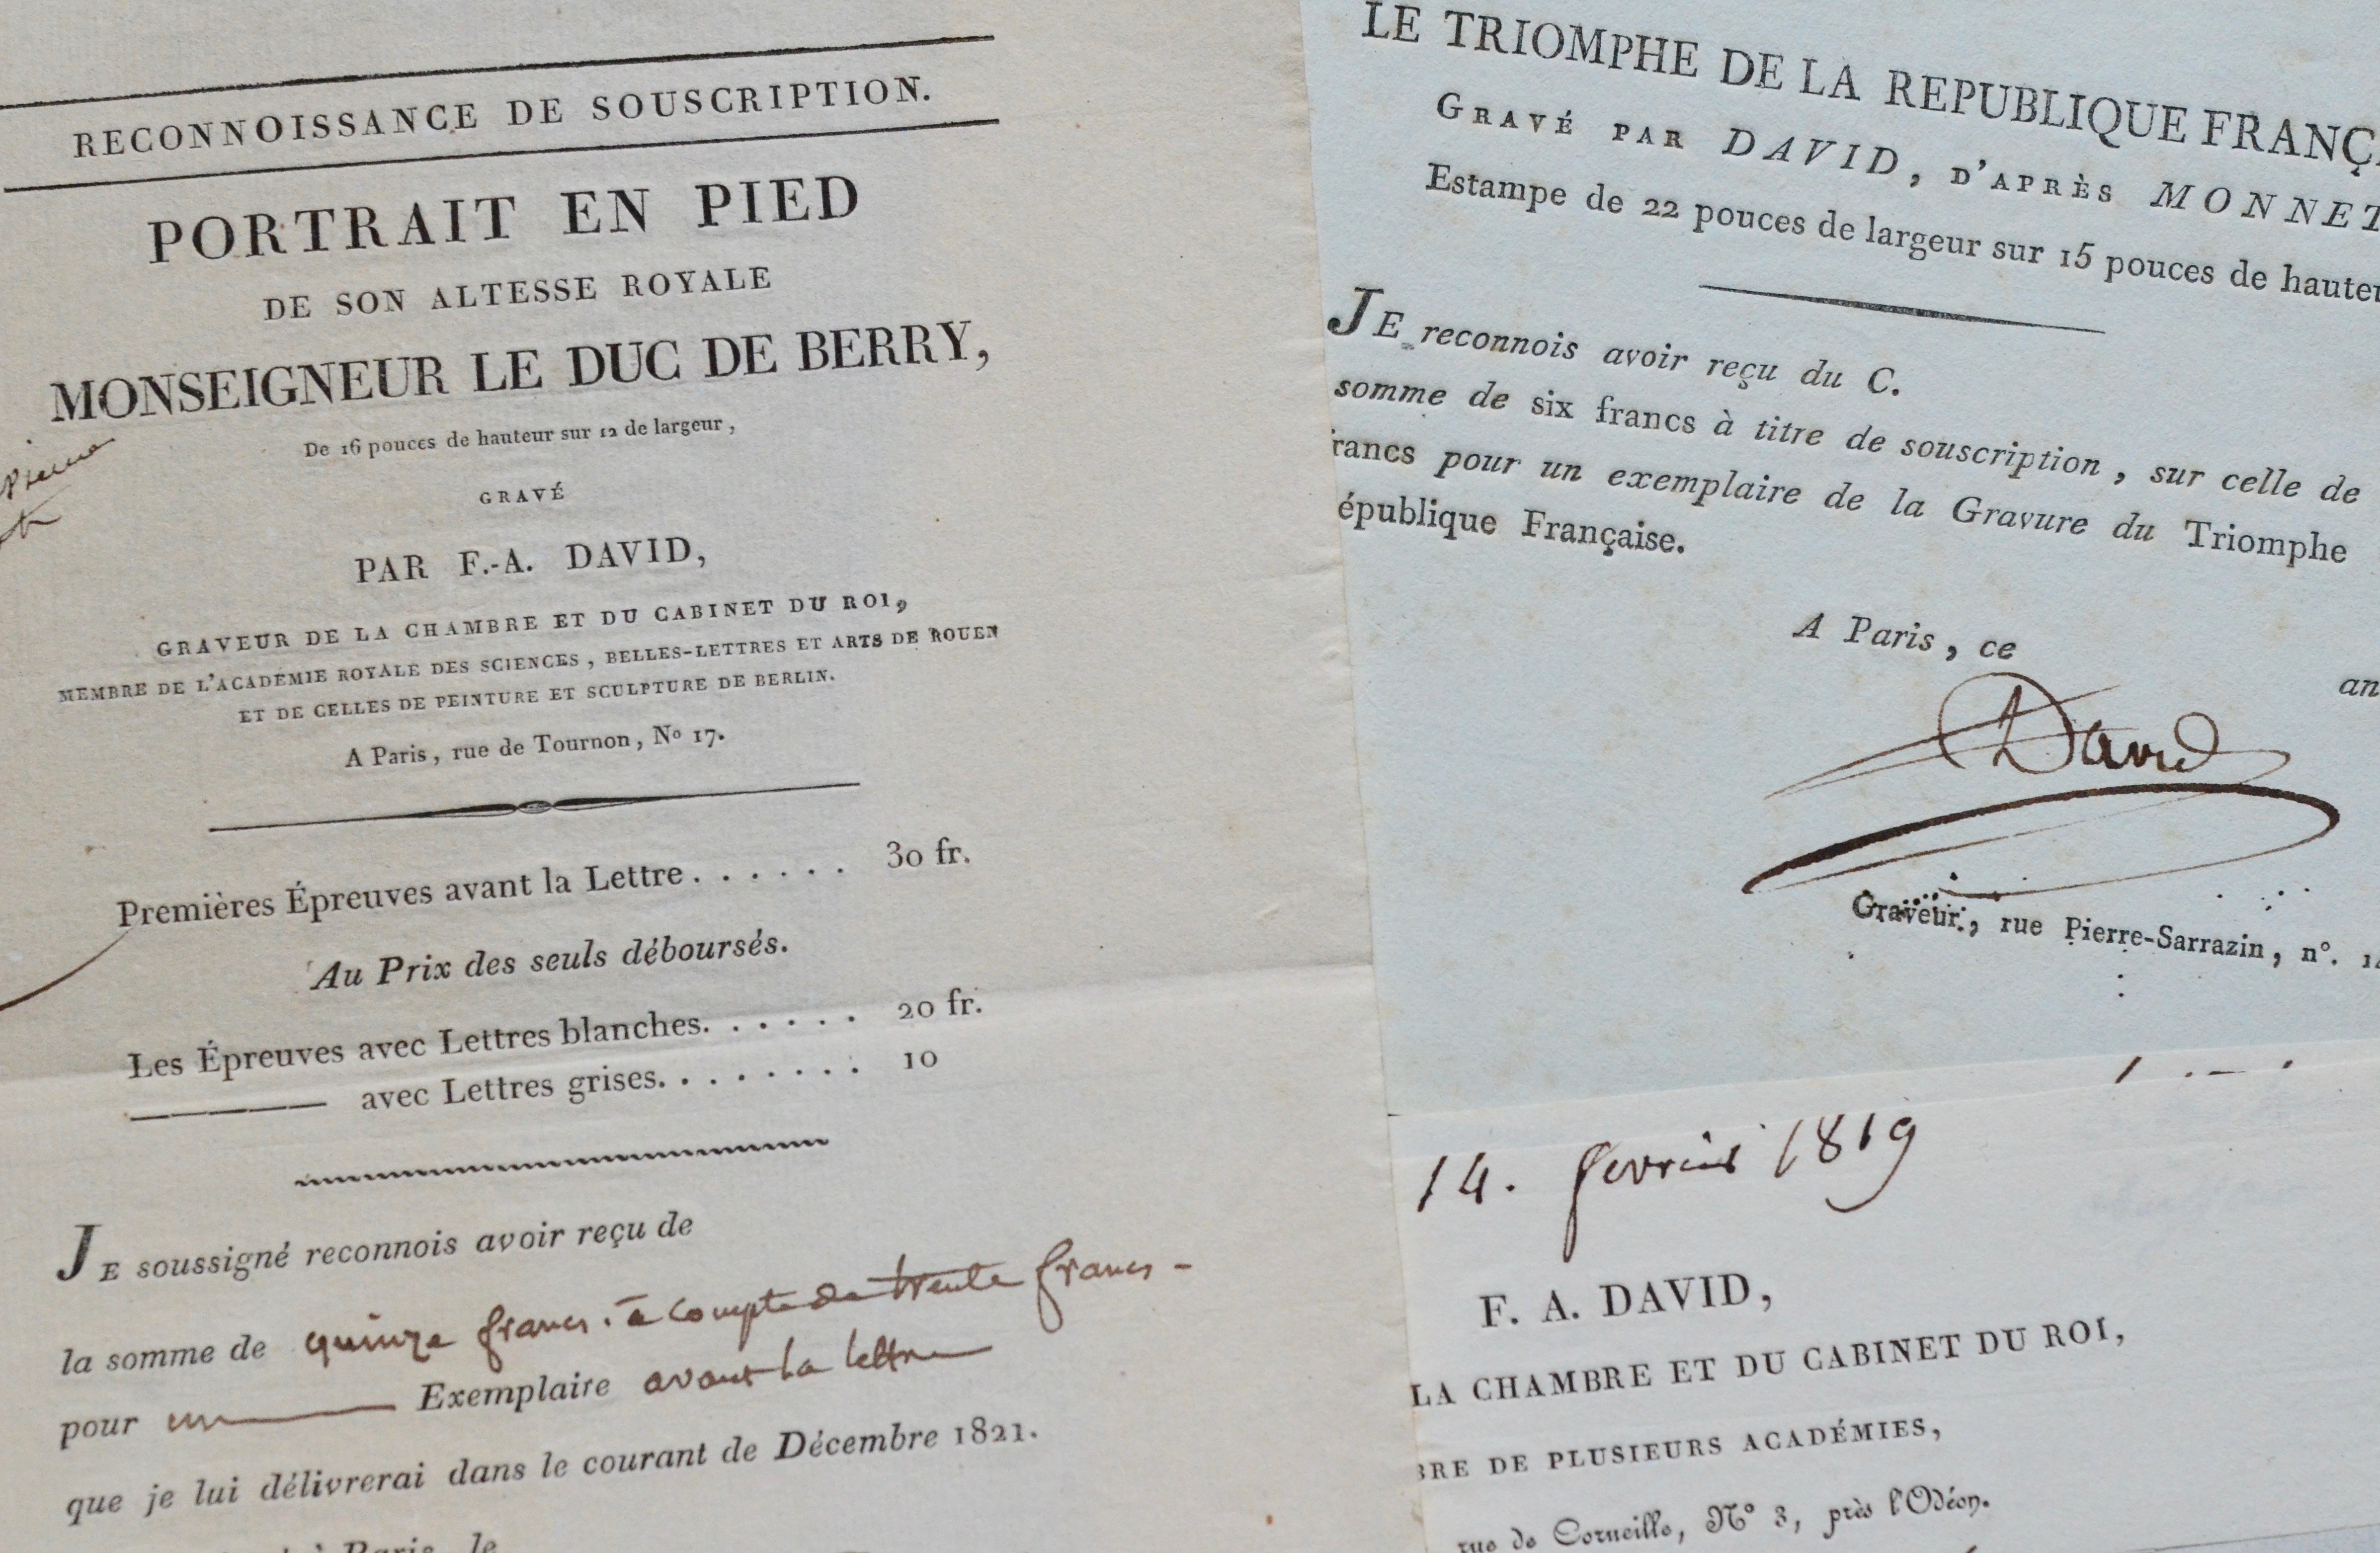 RECONNOISSANCE DE SOUSCRIPTION.
PORTRAIT EN PIED
DE SON ALTESSE ROYALE
MONSEIGNEUR LE DUC DE BERRY,
De 16 pouces de hauteur sur 12 de largeur,
GRAVÉ
PAR F.-A. DAVID,
GRAVEUR DE LA CHAMBRE ET DU CABINET DU ROI,
MEMBRE DE L'ACADÉMIE ROYALE DES SCIENCES, BELLES-LETTRES ET ARTS DE ROUEN
ET DE CELLES DE PEINTURE ET SCULPTURE DE BERLIN.
A Paris, rue de Tournon, No 17.
Premières Épreuves avant la Lettre...... 30 fr.
Au Prix des seuls déboursés.
Les Épreuves avec Lettres blanches...... 20 fr.
avec Lettres grises........ 10
JE soussigné reconnois avoir reçu de
la somme de quinze francs. à compte de trente francs -
pour un Exemplaire avant la lettre
que je lui délivrerai dans le courant de Décembre 1821.
Paris, le
LE TRIOMPHE DE LA REPUBLIQUE FRANÇ
GRAVÉ PAR DAVID, D'APRÈS MONNET
Estampe de 22 pouces de largeur sur 15 pouces de hauteu
JE reconnois avoir reçu du C.
somme de six francs à titre de souscription, sur celle de
rancs pour un exemplaire de la Gravure du Triomphe
épublique Française.
A Paris, ce
an
David
Graveur, rue Pierre-Sarrazin, n°.
14. fevrier 1819
F. A. DAVID,
LA CHAMBRE ET DU CABINET DU ROI,
BRE DE PLUSIEURS ACADÉMIES,
rue de Corneille, No 3, près l'Odéon.